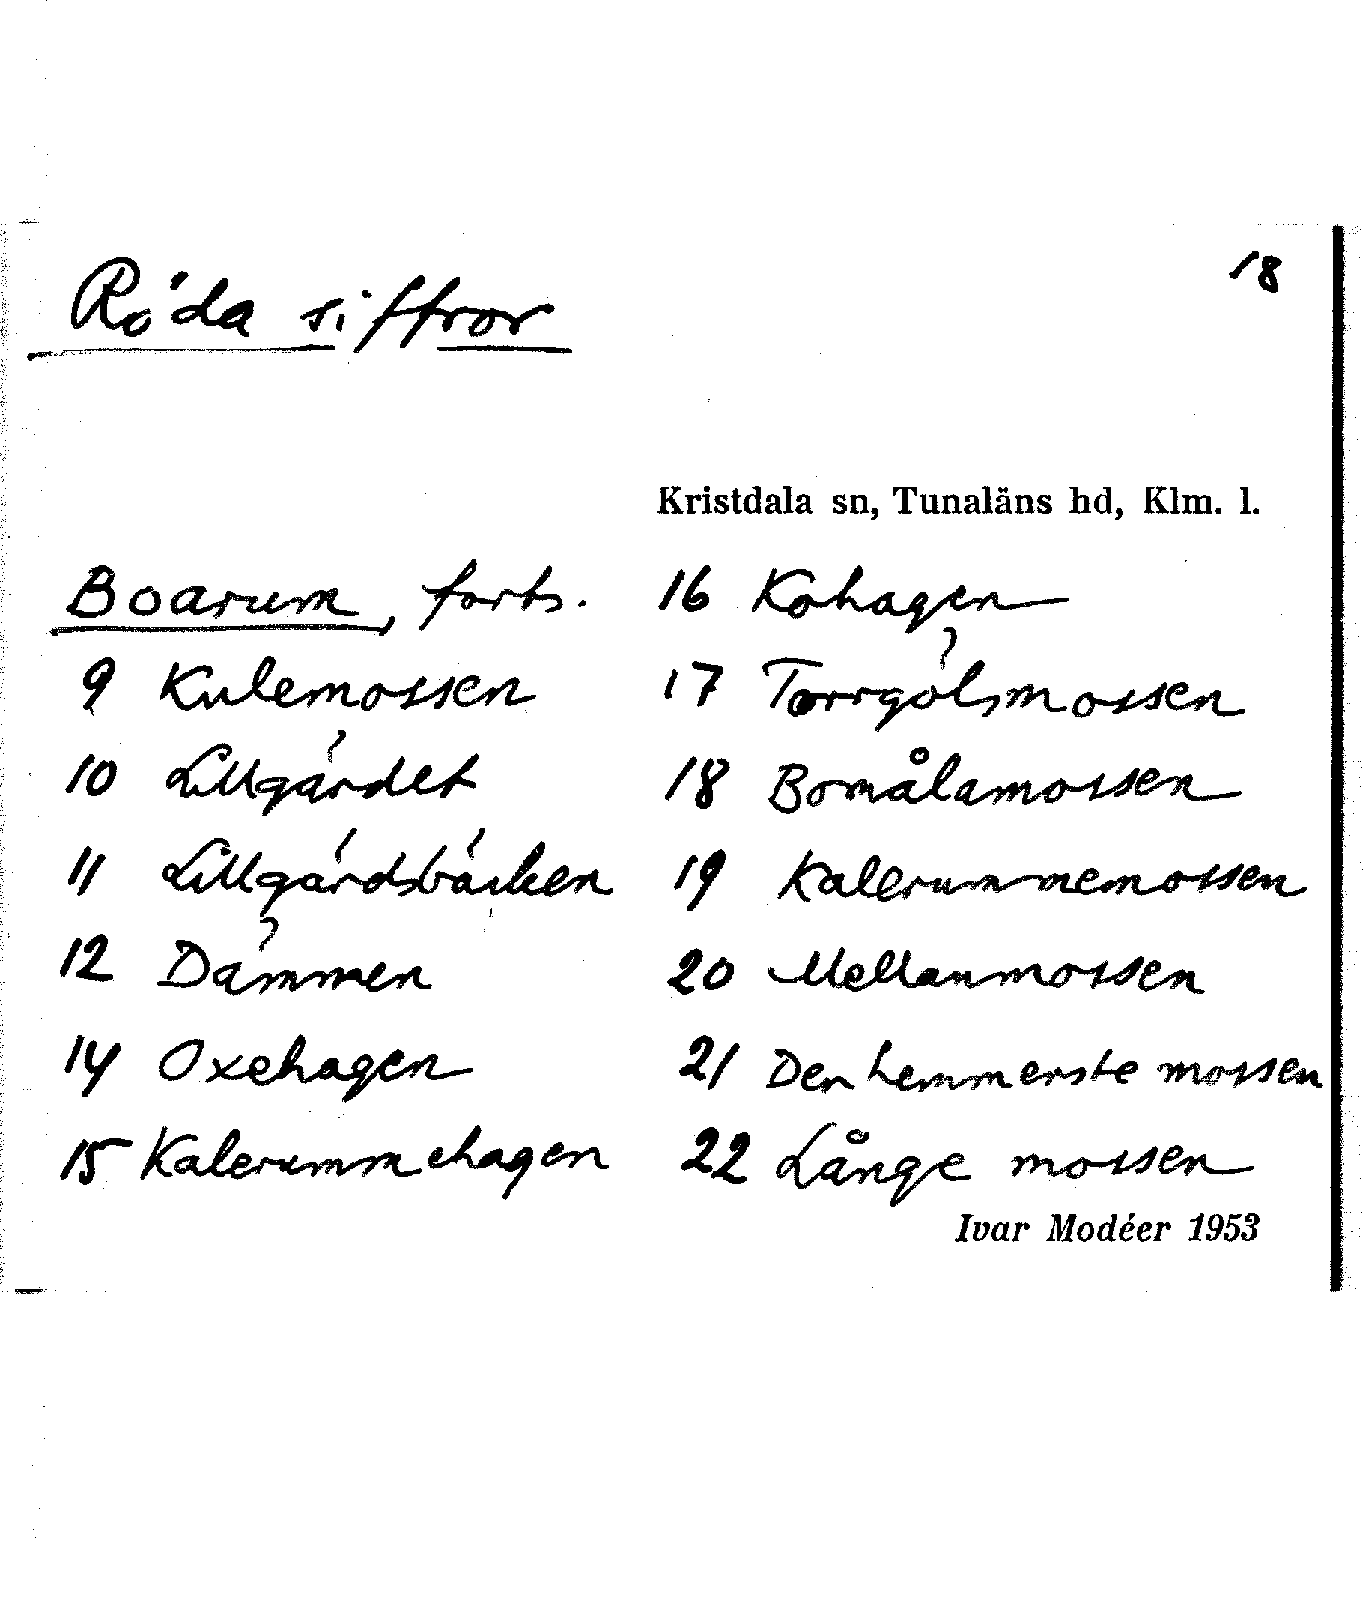 18
Röda siffror
Kristdala sn, Tunaläns hd, Klm. l.
Boarum, forts.
9 Kulemossen
10 Lillgärdet
11 Lillgärdsbäcken
12 Dämmen
14 Oxehagen
15 Kalerummehagen
16 Kohagen
17 Torrgölsmossen
18 Bomålamossen
19 Kalerummemossen
20 Mellanmossen
21 Den hemmerste mossen
22 Långe mossen
Ivar Modéer 1953